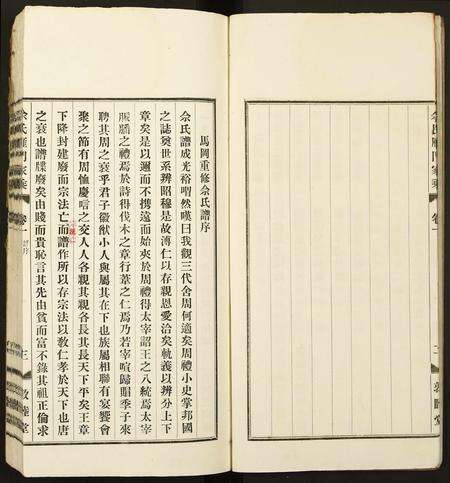 馬岡重修佘氏譜序
佘氏譜成光裕喟然嘆曰我觀三代舍周何適矣周禮小史掌邦國
之誌奠世系辨昭穆是故溥仁以存親恩愛洽矣軌義以辨分上下
章矣是以邇而不携遠而始夾於周禮得太宰詔王之八統焉太宰
脤膰之禮焉於詩得伐木之章行葦之仁焉乃若宰咺歸賵季子來
聘其周之衰乎君子徽猷小人與屬其在下也族屬相聯有宴饗會
聚之節有周恤慶唁之交人人各親其親各長其長天下平矣王章
下降封建廢而宗法亡而譜作所以存宗法以敎仁孝於天下也唐
之衰也譜牒廢矣由賤而貴恥言其先由貧而富不錄其祖正倫求
卷一
三